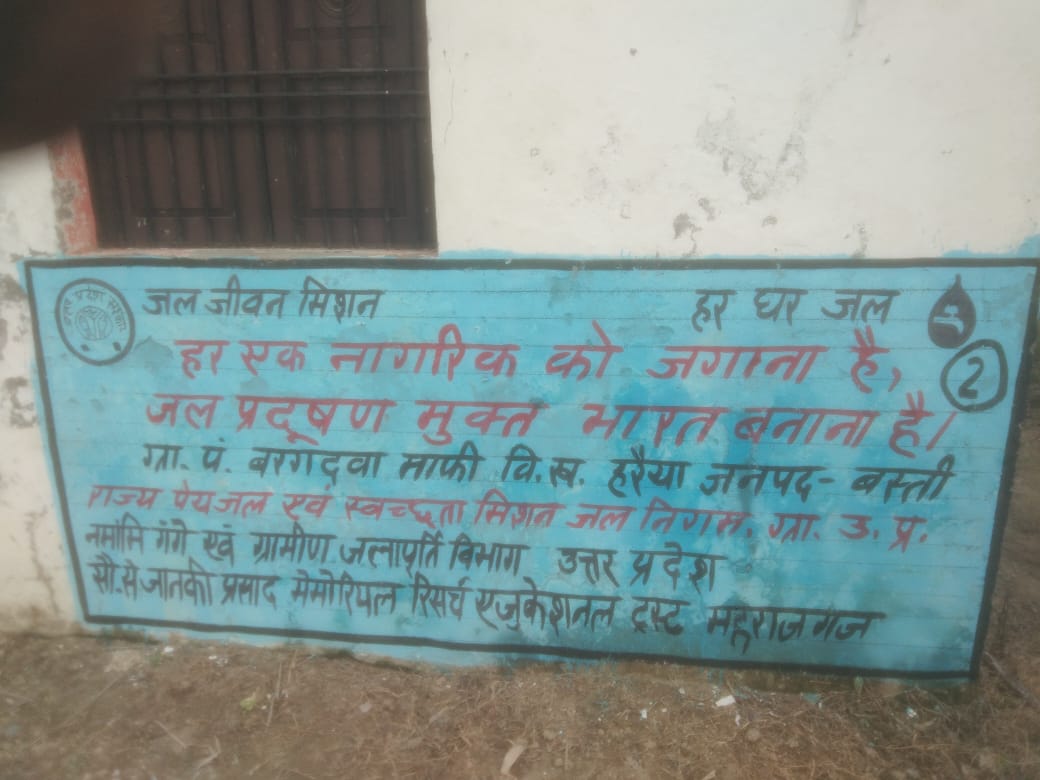 उत्तर प्रदेश सरकार
जल जीवन मिशन
हर घर जल
2
हर एक नागरिक को जगाना है,
जल प्रदूषण मुक्त भारत बनाना है।
ग्रा. पं. बरगदवा माफी वि.ख. हरैया जनपद- बस्ती
राज्य पेयजल एवं स्वच्छता मिशन जल निगम. ग्रा. उ. प्र.
नमामि गंगे एवं ग्रामीण जलापूर्ति विभाग उत्तर प्रदेश
सौ.से जानकी प्रसाद मेमोरियल रिसर्च एजुकेशनल ट्रस्ट महराजगंज